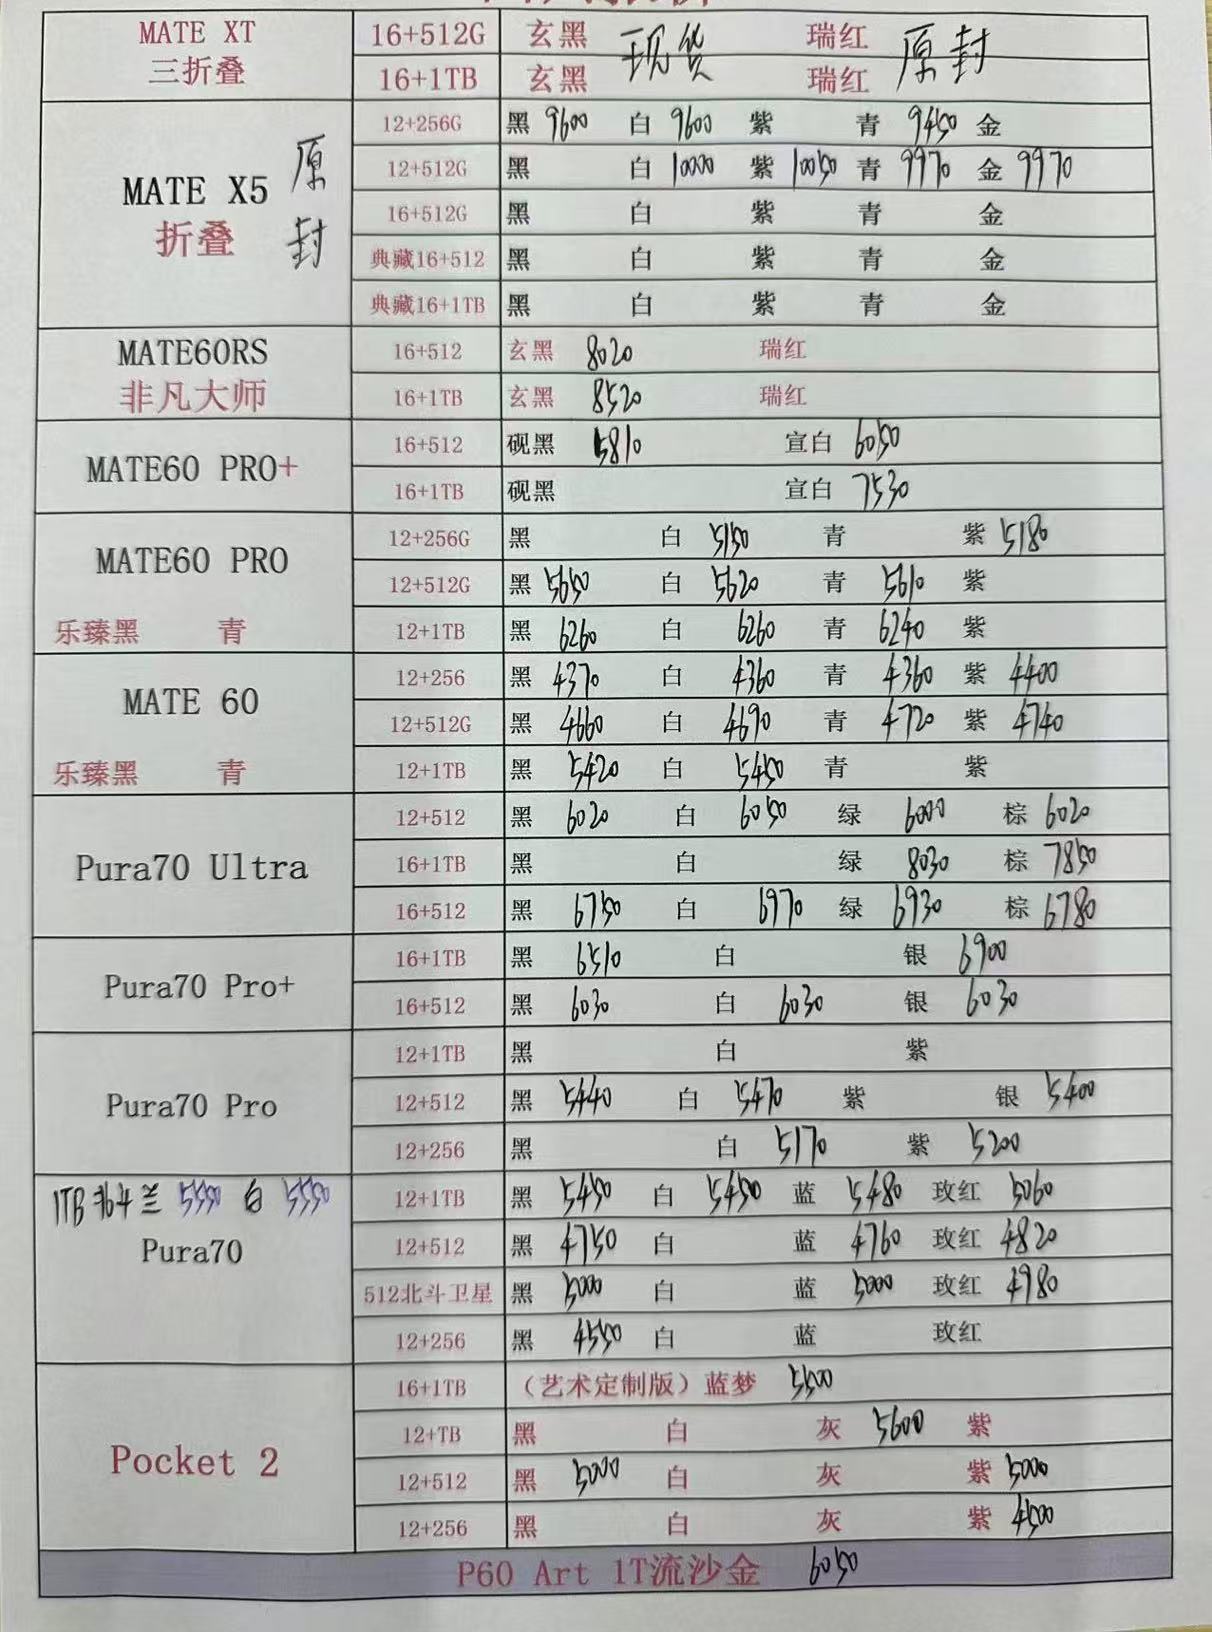 MATE XT 16+512G 玄黑 现货 瑞红 原封
三折叠 16+1TB 玄黑 瑞红
12+256G 黑 9600 白 9600 紫 青 9450 金
MATE X5 原封 12+512G 黑 白 10000 紫 10050 青 9970 金 9970
折叠 16+512G 黑 白 紫 青 金
典藏16+512 黑 白 紫 青 金
典藏16+1TB 黑 白 紫 青 金
MATE60RS 16+512 玄黑 8020 瑞红
非凡大师 16+1TB 玄黑 8520 瑞红
MATE60 PRO+ 16+512 砚黑 5810 宣白 6050
16+1TB 砚黑 宣白 7530
MATE60 PRO 12+256G 黑 白 5150 青 紫 5180
12+512G 黑 5650 白 5620 青 5610 紫
乐臻黑 青 12+1TB 黑 6260 白 6260 青 6240 紫
MATE 60 12+256 黑 4370 白 4360 青 4360 紫 4400
12+512G 黑 4660 白 4690 青 4720 紫 4740
乐臻黑 青 12+1TB 黑 5420 白 5450 青 紫
12+512 黑 6020 白 6050 绿 6000 棕 6020
Pura70 Ultra 16+1TB 黑 白 绿 8030 棕 7850
16+512 黑 6750 白 6970 绿 6930 棕 6780
Pura70 Pro+ 16+1TB 黑 6510 白 银 6900
16+512 黑 6030 白 6030 银 6030
12+1TB 黑 白 紫
Pura70 Pro 12+512 黑 5440 白 5470 紫 银 5400
12+256 黑 白 5170 紫 5200
1TB 北斗 兰 5550 白 5550 12+1TB 黑 5450 白 5450 蓝 5480 玫红 5060
Pura70 12+512 黑 4750 白 蓝 4760 玫红 4820
512北斗卫星 黑 5000 白 蓝 5000 玫红 4980
12+256 黑 4550 白 蓝 玫红
16+1TB （艺术定制版）蓝梦 5500
Pocket 2 12+TB 黑 白 灰 5600 紫
12+512 黑 5000 白 灰 紫 5000
12+256 黑 白 灰 紫 4500
P60 Art 1T流沙金 6050